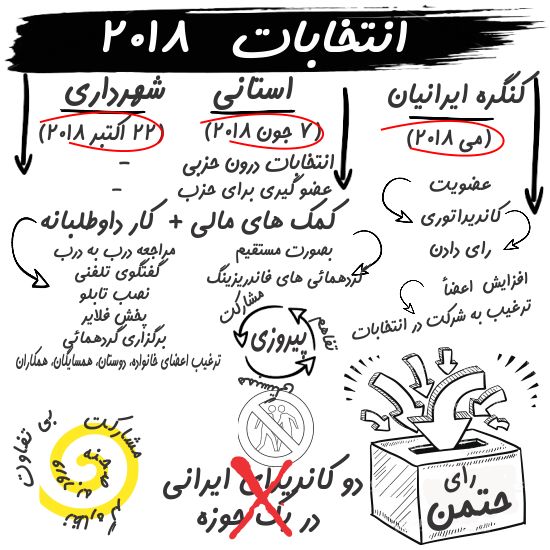 انتخابات ۲۰۱۸
کنگره ایرانیان
(می ۲۰۱۸)
عضویت
کاندیداتوری
رای دادن
افزایش اعضأ
ترغیب به شرکت در انتخابات
استانی
(۷ جون ۲۰۱۸)
انتخابات درون حزبی
عضو گیری برای حزب
شهرداری
(۲۲ اکتبر ۲۰۱۸)
-
-
کمک های مالی + کار داوطلبانه
بصورت مستقیم
گردهمائی های فاندریزینگ
مراجعه درب به درب
گفتگوی تلفنی
نصب تابلو
پخش فلایر
برگزاری گردهمائی
ترغیب اعضای خانواده، دوستان، همسایگان، همکاران
مشارکت
تفاهم
همنشینی
پیروزی
دو کاندیدای ایرانی
در یک حوزه
بی تفاوت
نظاره گر
ورود به صحنه
مشارکت
رای
حتمن